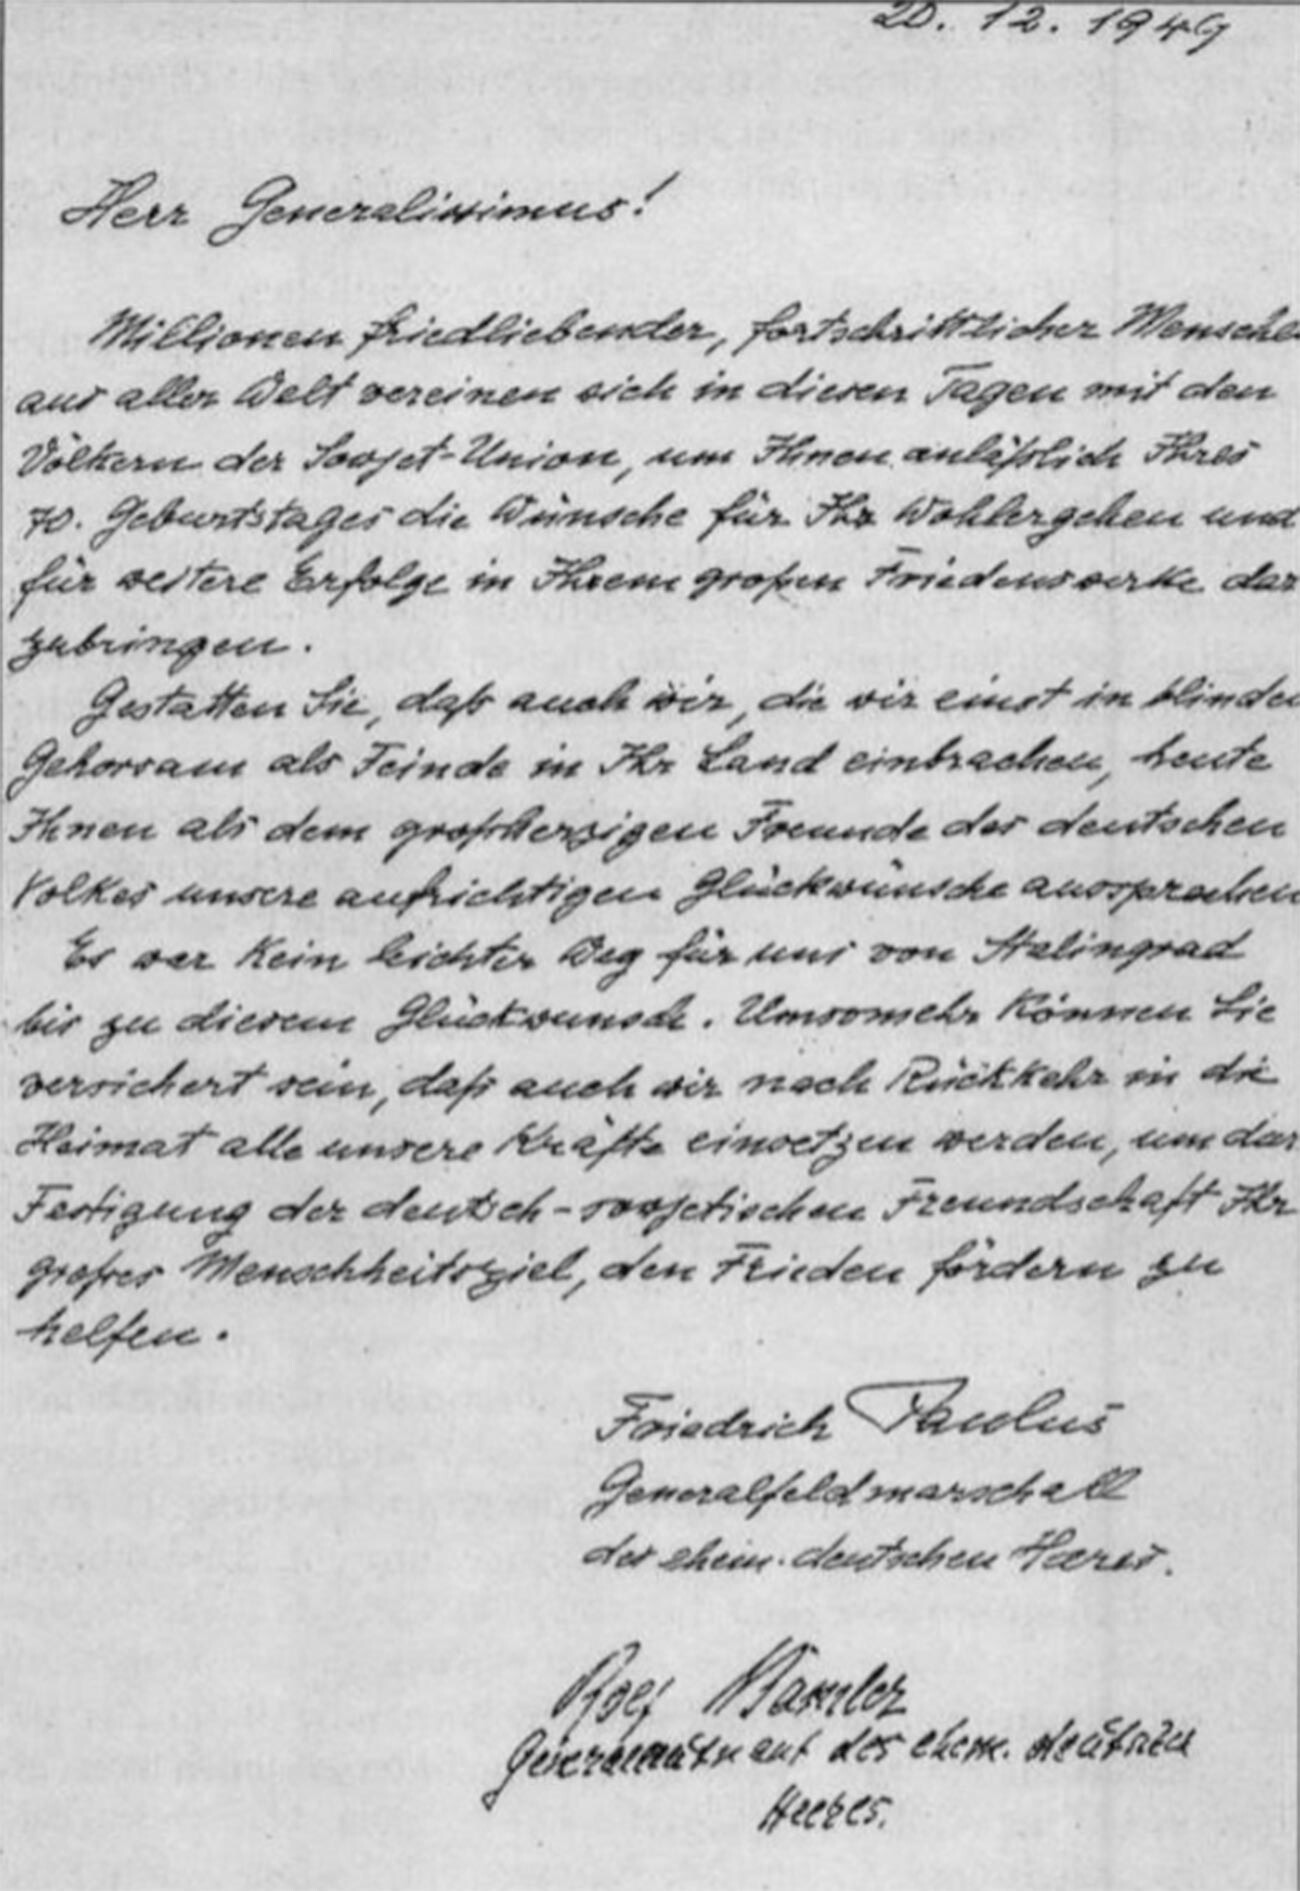 20. 12. 1949
Herr Generalissimus!
Millionen friedliebender, fortschrittlicher Mensche
aus aller Welt vereinen sich in diesen Tagen mit den
Völkern der Sowjet-Union, um Ihnen anläßlich Ihres
70. Geburtstages die Wünsche für Ihr Wohlergehen und
für weitere Erfolge in Ihrem großen Friedenswerke dar
zubringen.
Gestatten Sie, daß auch wir, die wir einst in blinden
Gehorsam als Feinde in Ihr Land einbrachen, heute
Ihnen als dem großherzigen Freunde des deutschen
Volkes unsere aufrichtigen Glückwünsche aussprechen
Es war kein leichter Weg für uns von Stalingrad
bis zu diesem Glückwunsch. Umsomehr können Sie
versichert sein, daß auch wir nach Rückkehr in die
Heimat alle unsere Kräfte einsetzen werden, um
Festigung der deutsch-sowjetischen Freundschaft Ihr
großes Menschheitsziel, den Frieden fördern zu
helfen.
Friedrich Paulus
Generalfeldmarschall
des ehem. deutschen Heeres.
des ehem. deutschen
Heeres.